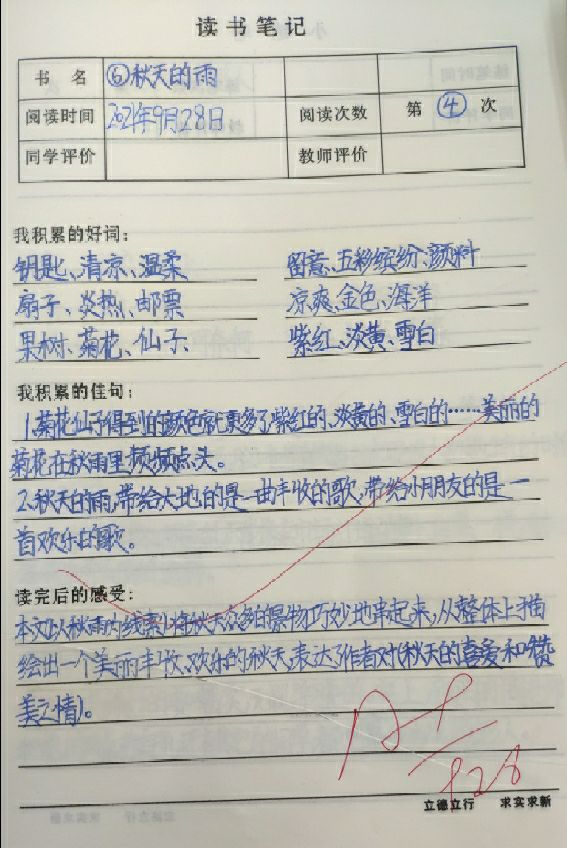 读书笔记
书名 ⑥秋天的雨
阅读时间 2021年9月28日 阅读次数 第④次
同学评价 教师评价
我积累的好词：
钥匙、清凉、温柔 留意、五彩缤纷、颜料
扇子、炎热、邮票 凉爽、金色、海洋
果树、菊花、仙子、 紫红、淡黄、雪白
我积累的佳句：
1.菊花仙子得到的颜色就更多了,紫红的、淡黄的、雪白的……美丽的
菊花在秋雨里频频点头。
2.秋天的雨,带给大地的是一曲丰收的歌,带给小朋友的是一
首欢乐的歌。
读完后的感受：
本文以秋雨为线索,将秋天众多的景物巧妙地串起来,从整体上描
绘出一个美丽丰收、欢乐的秋天,表达了作者对(秋天的喜爱和赞
美之情)。
A+
立德立行 求实求新